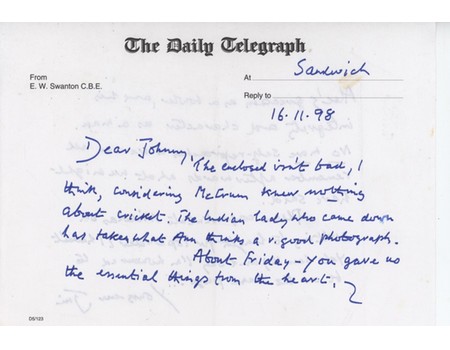 The Daily Telegraph
From
E. W. Swanton C.B.E.
At Sandwich
Reply to
16.11.98
Dear Johnny,
The enclosed isn't bad, I
think, considering McCrum knew nothing
about cricket. The Indian lady who came down
has taken what Ann thinks a v. good photograph.
About Friday - you gave us
the essential things from the heart.
DS/123